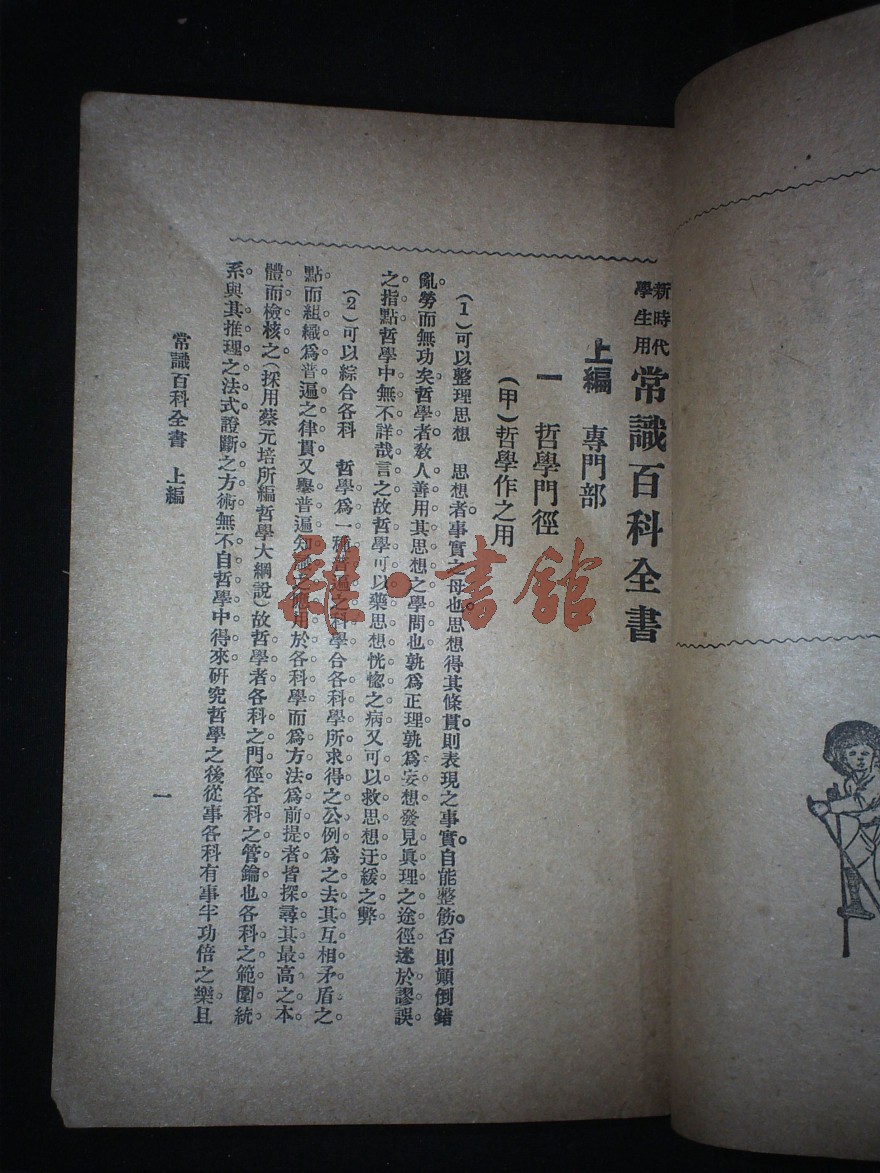 新時代
學生用
常識百科全書
上編　專門部
一　哲學門徑
(甲)哲學作之用
(1)可以整理思想　思想者事實之母也思想得其條貫則表現之事實自能整飭否則顛倒錯
亂勞而無功矣哲學者敎人善用其思想之學問也孰爲正理孰爲妄想發見眞理之途徑迷於謬誤
之指點哲學中無不詳哉言之故哲學可以藥思想恍惚之病又可以救思想迂緩之弊
(2)可以綜合各科　哲學爲一種普遍之科學合各科學所求得之公例爲之去其互相矛盾之
點而組織爲普遍之律貫又舉普遍知識之應用於各科學而爲方法爲前提者皆探尋其最高之本
體而檢核之(採用蔡元培所編哲學大綱說)故哲學者各科之門徑各科之管鑰也各科之範圍統
系與其推理之法式證斷之方術無不自哲學中得來硏究哲學之後從事各科有事半功倍之樂且
常識百科全書　上編
一
雜·書館